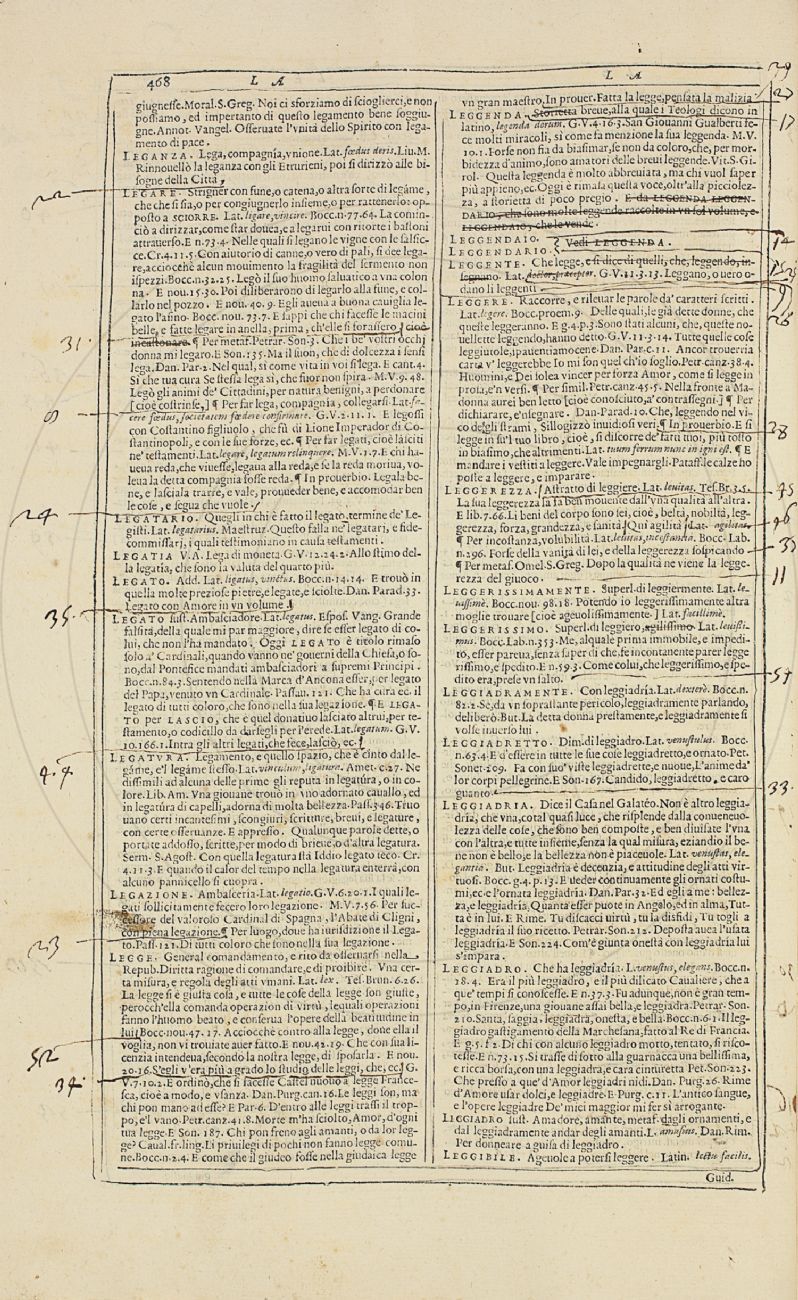 468
L A
L A
giugnesse. Moral. S. Greg. Noi ci sforziamo di scioglierci, e non
possiamo, ed impertanto di questo legamento bene soggiu-
gne. Annot. Vangel. Osseruate l'vnità dello Spirito con lega-
mento di pace.
LEGANZA. Lega, compagnía, vnione. Lat. fœdus deris. Liu. M.
Rinnouellò la leganza con gli Etturieni, poi si dirizzò alle bi-
sogne della Città,
LEGARE. Strigner con fune, o catena, o altra sorte di legáme,
che che si sia, o per congiugnerlo insieme, o per rattenerlo: op-
posto a SCIORRE. Lat. legare, vincire. Bocc. n. 77. 64. La comin-
ciò a dirizzar, come star douea, e a legarui con ritorte i bastoni
attrauerso. E n. 73. 4. Nelle quali si legano le vigne con le salsic-
ce. Cr. 4. 11. 5. Con aiutorio di canne, o vero di pali, si dee lega-
re, acciocchè alcun mouimento la fragilità del sermento non
ispezzi. Bocc. n. 32. 25. Legò il suo huomo saluatico a vna colon
na. E nou. 15. 30. Poi diliberarono di legarlo alla fune, e col-
larlo nel pozzo. E nou. 40. 9. Egli aueua a buona cauiglia le-
gato l'asino. Bocc. nou. 73. 7. E sappi che chi facesse le macini
belle, e fatte legare in anella, prima, ch'elle si forassero [cioè
incastonare. ¶ Per metaf. Petrar. Son. 3. Che i be' vostri occhi
donna mi legaro. E Son. 135. Ma il suon, che di dolcezza i sensi
lega. Dan. Par. 2. Nel qual, sì come vita in voi si lega. E cant. 4.
Sì che tua cura Se stessa lega sì, che fuor non spira. M. V. 9. 48.
Legò gli animi de' Cittadini, per natura benigni, a perdonare
[cioè costrinse,] ¶ Per far lega, compagnía, collegarsi. Lat. fe-
cere fœdus, societatem fœdere confirmare. G. V. 2. 11. 1. E legossi
con Costantino figliuolo, che fù di Lione Imperador di Co-
stantinopoli, e con le sue forze, ec. ¶ Per far legati, cioè lasciti
ne' testamenti. Lat. legare, legatum relinquere. M. V. 1. 7. E chi ha-
ueua reda, che viuesse, legaua alla reda, e se la reda moriua, vo-
leua la detta compagnia fosse reda. ¶ In prouerbio. Legala be-
ne, e lasciala trarre, e vale, prouueder bene, e accomodar ben
le cose, e segua che vuole.
LEGATARIO. Quegli in chi è fatto il legato, termine de' Le-
gisti. Lat. legatarius. Maestruz. Questo falla ne' legatarj, e fide-
commissarj, i quali testimoniano in causa testamenti.
LEGATIA V. A. Lega di moneta. G. V. 12. 24. 2. Allo stimo del-
la legatia, che sono la valuta del quarto più.
LEGATO. Add. Lat. ligatus, vinctus. Bocc. n. 14. 14. E trouò in
quella molte preziose pietre, e legate, e sciolte. Dan. Parad. 33.
Legato con Amore in vn volume.
LEGATO sust. Ambasciadore. Lat. legatus. Espos. Vang. Grande
falsità, della quale mi par maggiore, dire se esser legato di co-
lui, che non l'ha mandato. Oggi LEGATO è titolo rimaso
solo a' Cardinali, quando vanno ne' gouerni della Chiesa, o so-
no, dal Pontefice mandati ambasciadori a supremi Principi.
Bocc. n. 84. 3. Sentendo nella Marca d'Ancona esser, per legato
del Papa, venuto vn Cardinale. Passau. 121. Che ha cura ec. il
legato di tutti coloro, che sono nella sua legazione. ¶ E LEGA-
TO per LASCIO, che è quel donatiuo lasciato altrui, per te-
stamento, o codicillo da darsegli per l'erede. Lat. legatum. G. V.
10. 166. 1. Intra gli altri legati, che fece, lasciò, ec.
LEGATVRA. Legamento, e quello spazio, che è cinto dal le-
gáme, e 'l legáme stesso. Lat. vinculum, ligatura. Amet. c. 27. Ne
dissimili ad alcuna delle prime gli reputa in legatúra, o in co-
lore. Lib. Am. Vna giouane trouò in vno adornato cauallo, ed
in legatúra di capelli, adorna di molta bellezza. Pass. 346. Truo
uano certi incantesimi, scongiuri, scritture, breui, e legature,
con certe osseruanze. E appresso. Qualunque parole dette, o
portate addosso, scritte, per modo di brieue, o d'altra legatura.
Serm. S. Agost. Con quella legatura sta Iddio legato teco. Cr.
4. 11. 3. E quando il casor del tempo nella legatura enterrà, con
alcuno pannicello si cuopra.
LEGAZIONE. Ambascería. Lat. legatio. G. V. 6. 20. 1. I quali le-
gati sollicitamente fecero loro legazione. M. V. 7. 56. Per suc-
cessore del valoroso Cardinal di Spagna, l'Abate di Cligni,
con piena legazione. ¶ Per luogo, doue ha iurisdizione il Lega-
to. Pass. 121. Di tutti coloro che sono nella sua legazione.
LEGGE. General comandamento, e rito da osseruarsi nella
Repub. Diritta ragione di comandare, e di proibire. Vna cer-
ta misura, e regola degli atti vmani. Lat. lex. Tes. Brun. 6. 26.
La legge si è giusta cosa, e tutte le cose della legge son giuste,
perocch'ella comanda operazion di virtù, lequali operazioni
fanno l'huomo beato, e conserua l'opere della beatitudine in
lui. Bocc. nou. 47. 17. Acciocchè contro alla legge, doue ella il
voglia, non vi trouiate auer fatto. E nou. 42. 19. Che con sua li-
cenzia intendeua, secondo la nostra legge, di sposarla. E nou.
20. 16. S'egli v'era più a grado lo studio delle leggi, che, ec. G.
V. 7. 10. 2. E ordinò, che si facesse Castel nuouo a legge France-
sca, cioè a modo, e vsanza. Dan. Purg. can. 16. Le leggi son, ma
chi pon mano ad esse? E Par. 6. D'entro alle leggi trassi il trop-
po, e 'l vano. Petr. canz. 41. 8. Morte m'ha sciolto, Amor, d'ogni
tua legge. E Son. 187. Chi pon freno agli amanti, o dà lor leg-
ge? Caual. fr. ling. Ei priuilegi di pochi non fanno legge comu-
ne. Bocc. n. 2. 4. E come che il giudeo fosse nella giudaica legge
vn gran maestro. In prouer. Fatta la legge, pensata la malizia
LEGGENDA. Storietta breue, alla quale i Teologi dicono in
latino, legenda dorum. G. V. 4. 16. 3. San Giouanni Gualberti fe-
ce molti miracoli, sì come fa menzione la sua leggenda. M. V.
10. 1. Forse non fia da biasimar, se non da coloro, che, per mor-
bidezza d'animo, sono amatori delle breui leggende. Vit. S. Gi-
rol. Questa leggenda è molto abbreuiata, ma chi vuol saper
più appieno, ec. Oggi è rimasa questa voce, oltr'alla picciolez-
za, a storietta di poco pregio. E da LEGGENDA LEGGEN-
DAIO, che sono molte leggende raccolte in vn sol volume, e
LEGGENDAIO, che le vende.
LEGGENDAIO.
LEGGENDARIO. Vedi LEGGENDA.
LEGGENTE. Che legge, e si dice di quelli, che, leggendo, in-
segnano. Lat. doctor, præceptor. G. V. 11. 3. 13. Leggano, o uero o-
dano li leggenti
LEGGERE. Raccorre, e rileuar le parole da' caratteri scritti.
Lat. legere. Bocc. proem. 9. Delle quali, le già dette donne, che
queste leggeranno. E g. 4. p. 3. Sono stati alcuni, che, queste no-
uellette leggendo, hanno detto. G. V. 11. 3. 14. Tutte quelle cose
leggiutole, ipauentiamocene. Dan. Par. c. 11. Ancor troueria
carta v' leggerebbe Io mi son quel ch'io soglio. Petr. canz. 38. 4.
Huomini, e Dei solea vincer per forza Amor, come si legge in
prosa, e 'n versi. ¶ Per simil. Petr. canz. 45. 5. Nella fronte a Ma-
donna aurei ben letto [cioè conosciuto, a' contrassegni.] ¶ Per
dichiarare, e 'nsegnare. Dan. Parad. 10. Che, leggendo nel vi-
co degli strami, Sillogizzò inuidiosi veri. ¶ In prouerbio. E si
legge in su 'l tuo libro, cioè, si discorre de' fatti tuoi, più tosto
in biasimo, che altrimenti. Lat. tuum ferrum nunc in igni est. ¶ E
mandare i vestiti a leggere. Vale impegnargli. Pataff. le calze ho
poste a leggere, e imparare.
LEGGEREZZA. Astratto di leggiere. Lat. leuitas. Tes. Br. 3. 5.
La sua leggerezza fa sa ben mouente dall'vna qualità all'altra.
E lib. 7. 66. Li beni del corpo sono sei, cioè, beltà, nobiltà, leg-
gerezza, forza, grandezza, e sanità. Qui agilità Lat. agilitas
¶ Per incostanza, volubilità. Lat. leuitas, inconstantia. Bocc. Lab.
n. 296. Forse della vanità di lei, e della leggerezza sospicando
¶ Per metaf. Omel. S. Greg. Dopo la qualità ne viene la legge-
rezza del giuoco.
LEGGERISSIMAMENTE. Superl. di leggiermente. Lat. le-
uissimè. Bocc. nou. 98. 18. Potendo io leggerissimamente altra
moglie trouare [cioè ageuolissimamente.] Lat. facillimè.
LEGGERISSIMO. Superl. di leggiero, agilissimo. Lat. leuissi-
mus. Bocc. Lab. n. 353. Me, alquale prima immobile, e impedi-
to, esser parea, senza saper di che, fe incontanente parer legge
rissimo, e spedito. E n. 59. 3. Come colui, che leggerissimo, e spe-
dito era, prese vn salto.
LEGGIADRAMENTE. Con leggiadría. Lat. dexterè. Bocc. n.
82. 2. Se, da vn soprastante pericolo, leggiadramente parlando,
deliberò. But. La detta donna prestamente, e leggiadramente si
volse inuerso lui.
LEGGIADRETTO. Dim. di leggiadro. Lat. venustulus. Bocc.
n. 63. 4. E d'essere in tutte le sue cose leggiadretto, e ornato. Pet.
Sonet. 209. Fa con suo' viste leggiadrette, e nuoue, L'anime da'
lor corpi pellegrine. E Son. 167. Candido, leggiadretto, e caro
guanto.
LEGGIADRIA. Dice il Casa nel Galatéo. Non è altro leggia-
dría, che vna, cotal quasi luce, che risplende dalla conueneuo-
lezza delle cose, che sono ben composte, e ben diuisate l'vna
con l'altra, e tutte insieme, senza la qual misura, eziandio il be-
ne non è bello, e la bellezza non è piaceuole. Lat. venustas, ele-
gantia. But. Leggiadría è decenzia, e attitudine degli atti vir-
tuosi. Bocc. g. 4. p. 13. E ueder continuamente gli ornati costu-
mi, ec. e l'ornata leggiadría. Dan. Par. 32. Ed egli a me: bellez-
za, e leggiadría, Quanta esser puote in Angelo, ed in alma, Tut-
ta è in lui. E Rime. Tu discacci uirtù, tu la disfidi, Tu togli a
leggiadría il suo ricetto. Petrar. Son. 212. Deposta auea l'usata
leggiadría. E Son. 224. Com'è giunta onestà con leggiadría lui
s'impara.
LEGGIADRO. Che ha leggiadría. L. venustus, elegans. Bocc. n.
18. 4. Era il più leggiadro, e il più dilicato Caualiere, che a
que' tempi si conoscesse. E n. 37. 3. Fu adunque, non è gran tem-
po, in Firenze, una giouane assai bella, e leggiadra. Petrar. Son.
210. Santa, saggia, leggiadra, onesta, e bella. Bocc. n. 6. 1. Il leg-
giadro gastigamento della Marchesana, fatto al Re di Francia.
E g. 5. f. 2. Di chi con alcuno leggiadro motto, tentato, si risco-
tesse. E n. 73. 15. Si trasse di sotto alla guarnacca una bellissima,
e ricca borsa, con una leggiadra, e cara cinturetta. Pet. Son. 223.
Che presso a que' d'Amor leggiadri nidi. Dan. Purg. 26. Rime
d'Amore usar dolci, e leggiadre. E Purg. c. 11. L'antico sangue,
e l'opere leggiadre De' miei maggior mi fer sì arrogante.
LEGGIADRO sust. Amadore, amante, metaf. dagli ornamenti, e
dal leggiadramente andar degli amanti. L. amasius. Dan. Rim.
Per donneare a guisa di leggiadro.
LEGGIBILE. Ageuole a potersi leggere. Latin. lectu facilis.
Guid.